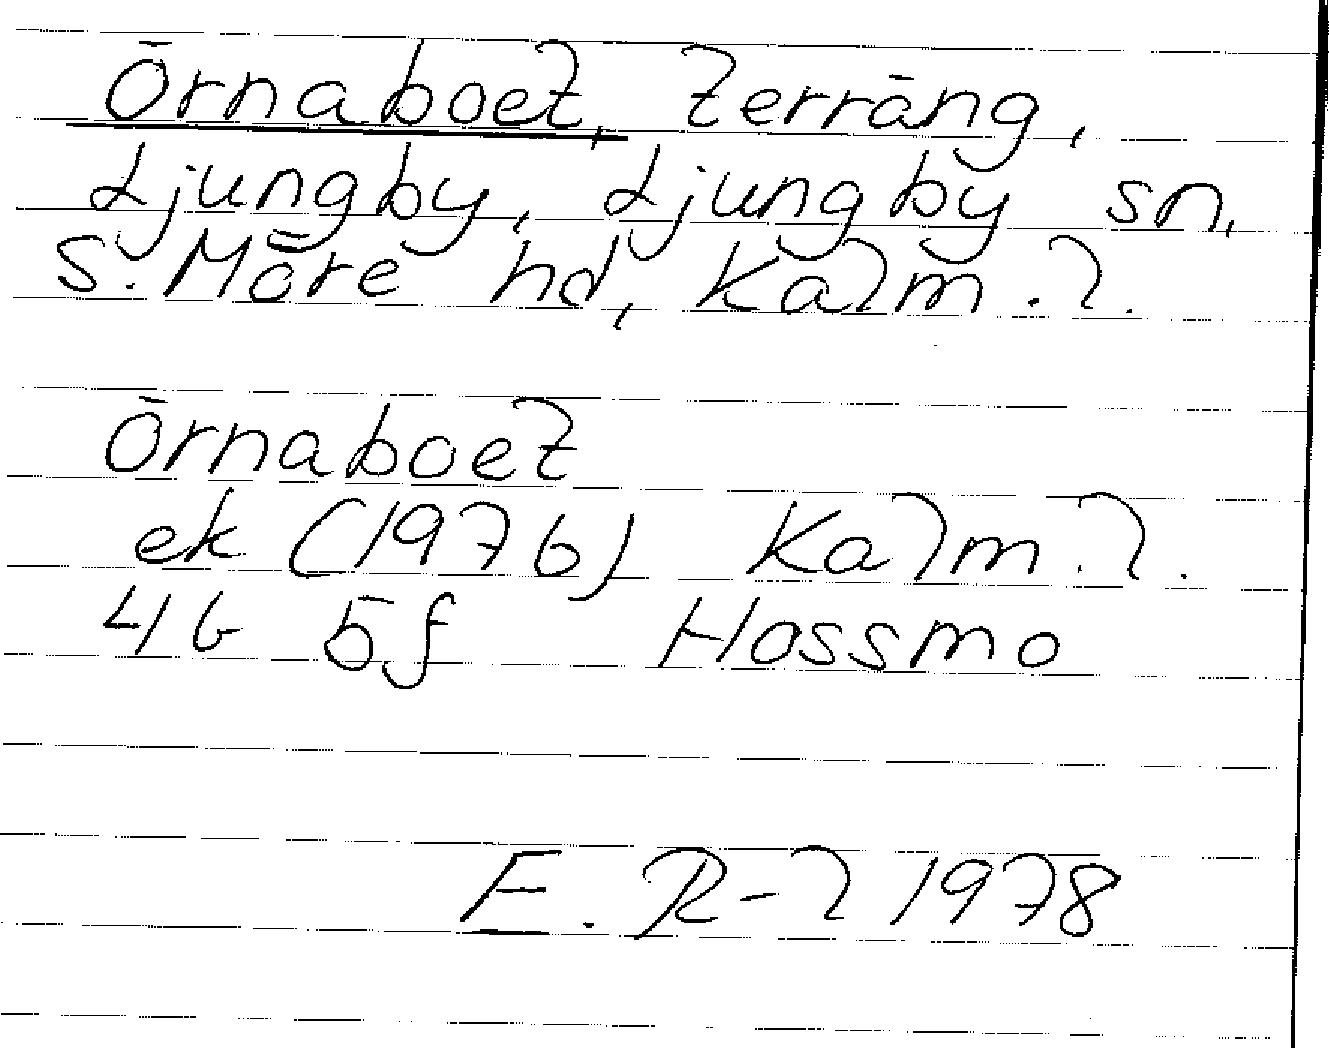 Örnaboet, terräng,
Ljungby, Ljungby sn,
S. Möre hd, Kalm. l.
Örnaboet
ek (1976) Kalm. l.
4G 5f Hossmo
E. R-l 1978